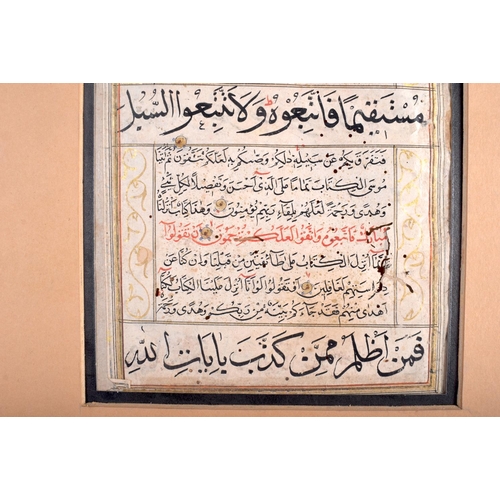 مستقيما فاتبعوه ولا تتبعوا السبل
فتفرق بكم عن سبيله ذلكم وصيكم به لعلكم تتقون ثم اتينا
موسى الكتاب تماما على الذي احسن وتفصيلا لكل شيء
وهدى ورحمة لعلهم بلقاء ربهم يؤمنون وهذا كتاب انزلناه
مبارك فاتبعوه واتقوا لعلكم ترحمون ان تقولوا
انما انزل الكتاب على طائفتين من قبلنا وان كنا عن
دراستهم لغافلين او تقولوا لو انا انزل علينا الكتاب لكنا
اهدى منهم فقد جاءكم بينة من ربكم وهدى ورحمة
فمن اظلم ممن كذب بايات الله